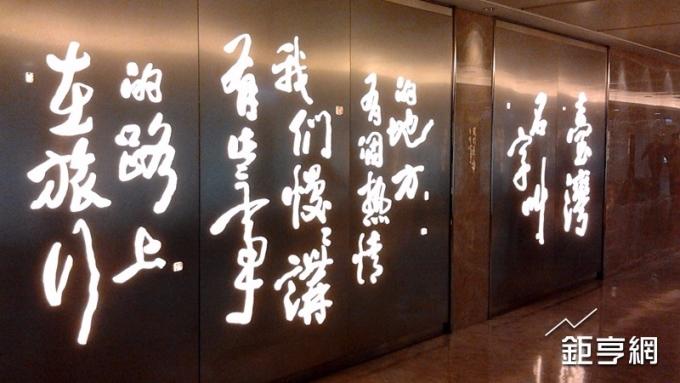 在旅行
的路上
有些事
我們慢慢講
有個熱情
的地方
名字叫
臺灣
鉅亨網